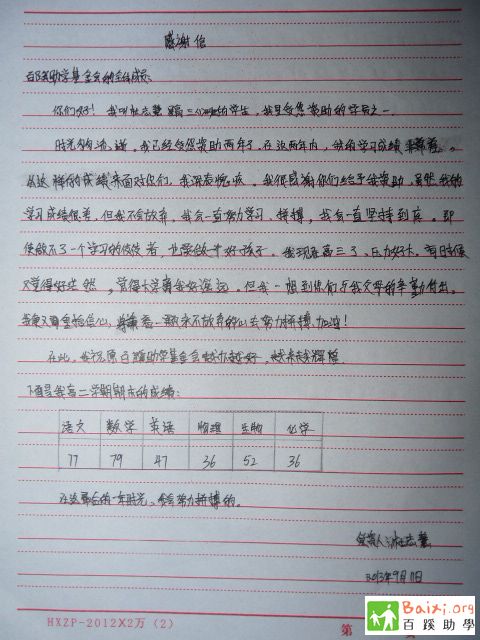 感谢信
百蹊助学基金会的全体成员:
你们好! 我叫 高三 的学生, 我是您资助的学员之一.
时光匆匆流逝, 我已经您资助两年了. 在这两年内, 我的学习成绩
以这样的成绩来面对你们, 我深表愧疚。我很感谢你们给予我资助, 虽然我的
学习成绩很差, 但我不会放弃, 我会一直努力学习、拼搏, 我会一直坚持到底。即
使做不了一个学习的佼佼者, 也要做一个好孩子。我现在高三了, 压力好大, 有时候
又觉得好茫然, 觉得大学离我好遥远。但我一想到你们与我父母的辛勤付出,
我便又重拾信心, 一颗永不放弃的心去努力拼搏, 加油!
在此, 我祝愿百蹊助学基金会越办越好, 越来越辉煌.
下面是我高二学期期末的成绩:
语文 数学 英语 物理 生物 化学
77 79 47 36 52 36
在这最后的一年时光, 我会努力拼搏的。
受资人:
2013年9月11日
HXZP-2012X2万(2)
第
Baixi.org
百蹊助學